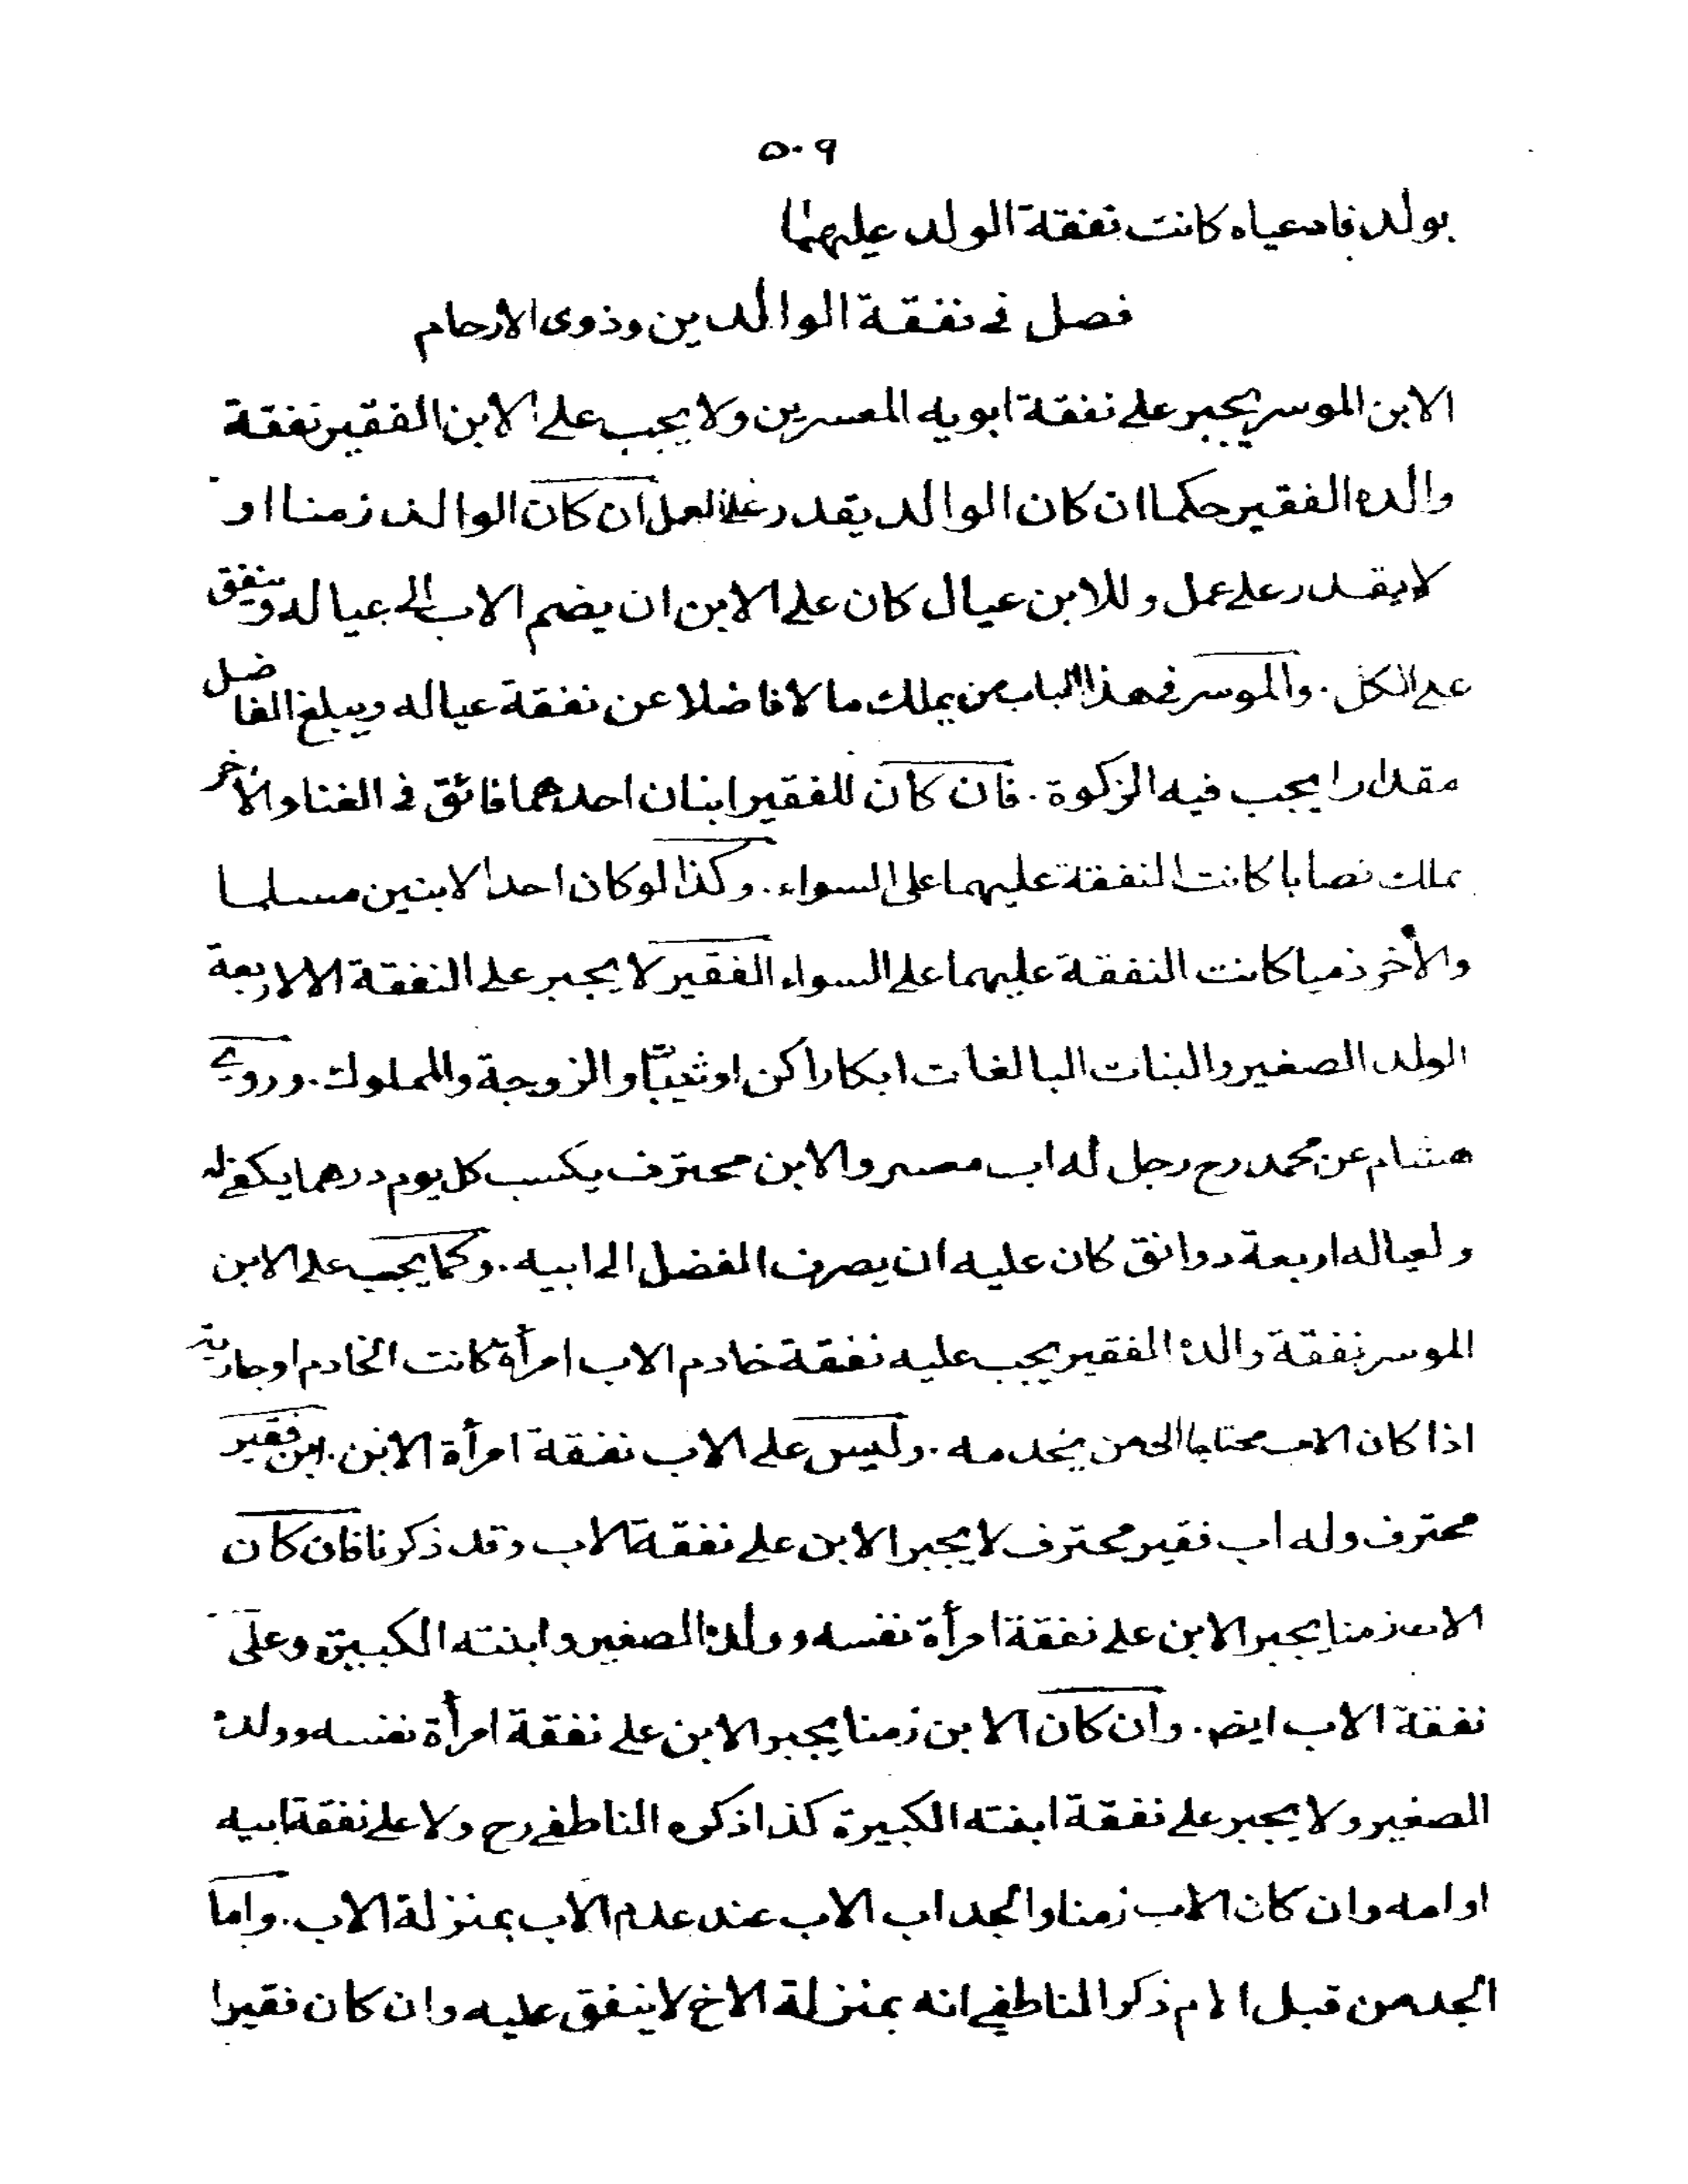 ٥٠٩
بولد فادعياه كانت نفقة الولد عليهما
فصل في نفقة الوالدين وذوى الأرحام
الابن الموسر يجبر على نفقة ابويه المعسرين ولا يجب على الابن الفقير نفقة
والده الفقير حكما ان كان الوالد يقدر على العمل ان كان الوالد زمنا او
لا يقدر على عمل وللابن عيال كان على الابن ان يضم الاب الى عياله وينفق
على الكل. والموسر في هذا الباب من يملك مالا فاضلا عن نفقة عياله ويبلغ الفاضل
مقدارا يجب فيه الزكوة. فان كان للفقير ابنان احدهما فائق في الغنا والأخر
يملك نصابا كانت النفقة عليهما على السواء. وكذا لو كان احد الابنين مسلما
والأخر ذميا كانت النفقة عليهما على السواء الفقير لا يجبر على النفقة الا لاربعة
الولد الصغير والبنات البالغات ابكارا كن او ثيبًا والزوجة والمملوك. وروى
هشام عن محمد رح رجل له اب معسر والابن محترف يكسب كل يوم درهما يكفي له
ولعياله اربعة دوانق كان عليه ان يصرف الفضل الى ابيه. وكما يجب على الابن
الموسر نفقة والده الفقير يجب عليه نفقة خادم الاب امرأة كانت الخادم او جارية
اذا كان الاب محتاجا الى من يخدمه. وليس على الاب نفقة امرأة الابن. ابن فقير
محترف وله اب فقير محترف لا يجبر الابن على نفقة الاب وقد ذكرنا فان كان
الاب زمنا يجبر الابن على نفقة امرأة نفسه وولده الصغير وابنته الكبيرة وعلى
نفقة الاب ايض. وان كان الابن زمنا يجبر الابن على نفقة امرأة نفسه وولده
الصغير ولا يجبر على نفقة ابنته الكبيرة كذا ذكره الناطفي رح ولا على نفقة ابيه
او امه وان كان الاب زمنا والجد اب الاب عند عدم الأب بمنزلة الاب. واما
الجد من قبل الام ذكر الناطفي انه بمنزلة الاخ لا ينفق عليه وان كان فقيرا